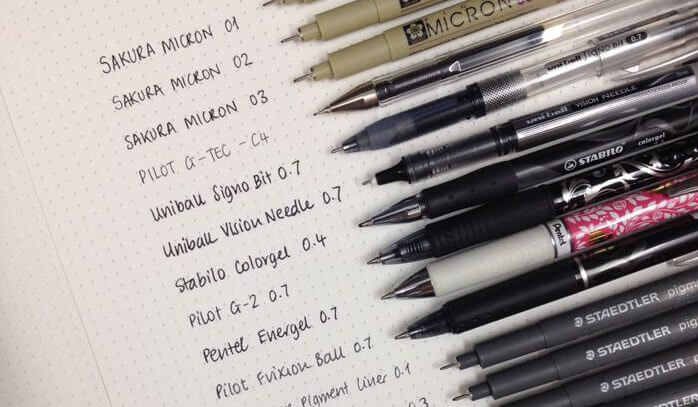 SAKURA MICRON 01
SAKURA MICRON 02
SAKURA MICRON 03
PILOT G-TEC-C4
Uniball Signo Bit 0.7
Uniball Vision Needle 0.7
Stabilo Colorgel 0.4
Pilot G-2 0.7
Pentel Energel 0.7
Pilot Frixion Ball 0.7
Pigment Liner 0.1
0.3
MICRON
uni-ball SIGNO bit 0.7
uni-ball VISION NEEDLE
STABILO colorgel
Pentel
STAEDTLER pigment
STAEDTLER pigm
STAEDTLER